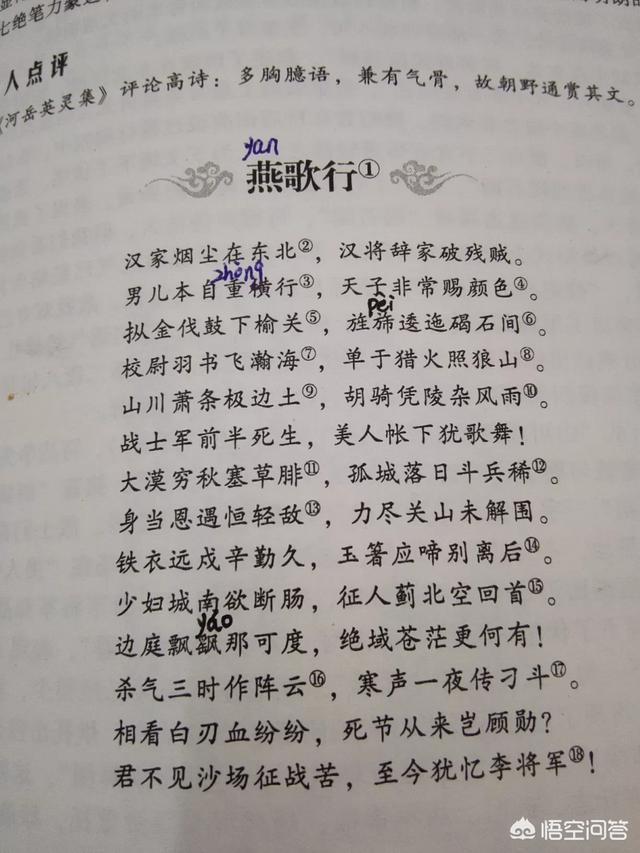 七绝笔力豪
人点评
《河岳英灵集》评论高诗：多胸臆语，兼有气骨，故朝野通赏其文。
yan
燕歌行①
汉家烟尘在东北②，汉将辞家破残贼。
zhòng
男儿本自重横行③，天子非常赐颜色④。
pèi
摐金伐鼓下榆关⑤，旌旆逶迤碣石间⑥。
校尉羽书飞瀚海⑦，单于猎火照狼山⑧。
山川萧条极边土⑨，胡骑凭陵杂风雨⑩。
战士军前半死生，美人帐下犹歌舞！
大漠穷秋塞草腓⑪，孤城落日斗兵稀⑫。
身当恩遇恒轻敌⑬，力尽关山未解围。
铁衣远戍辛勤久，玉箸应啼别离后⑭。
少妇城南欲断肠，征人蓟北空回首⑮。
yáo
边庭飘飖那可度，绝域苍茫更何有！
杀气三时作阵云⑯，寒声一夜传刁斗⑰。
相看白刃血纷纷，死节从来岂顾勋？
君不见沙场征战苦，至今犹忆李将军⑱！
悟空问答